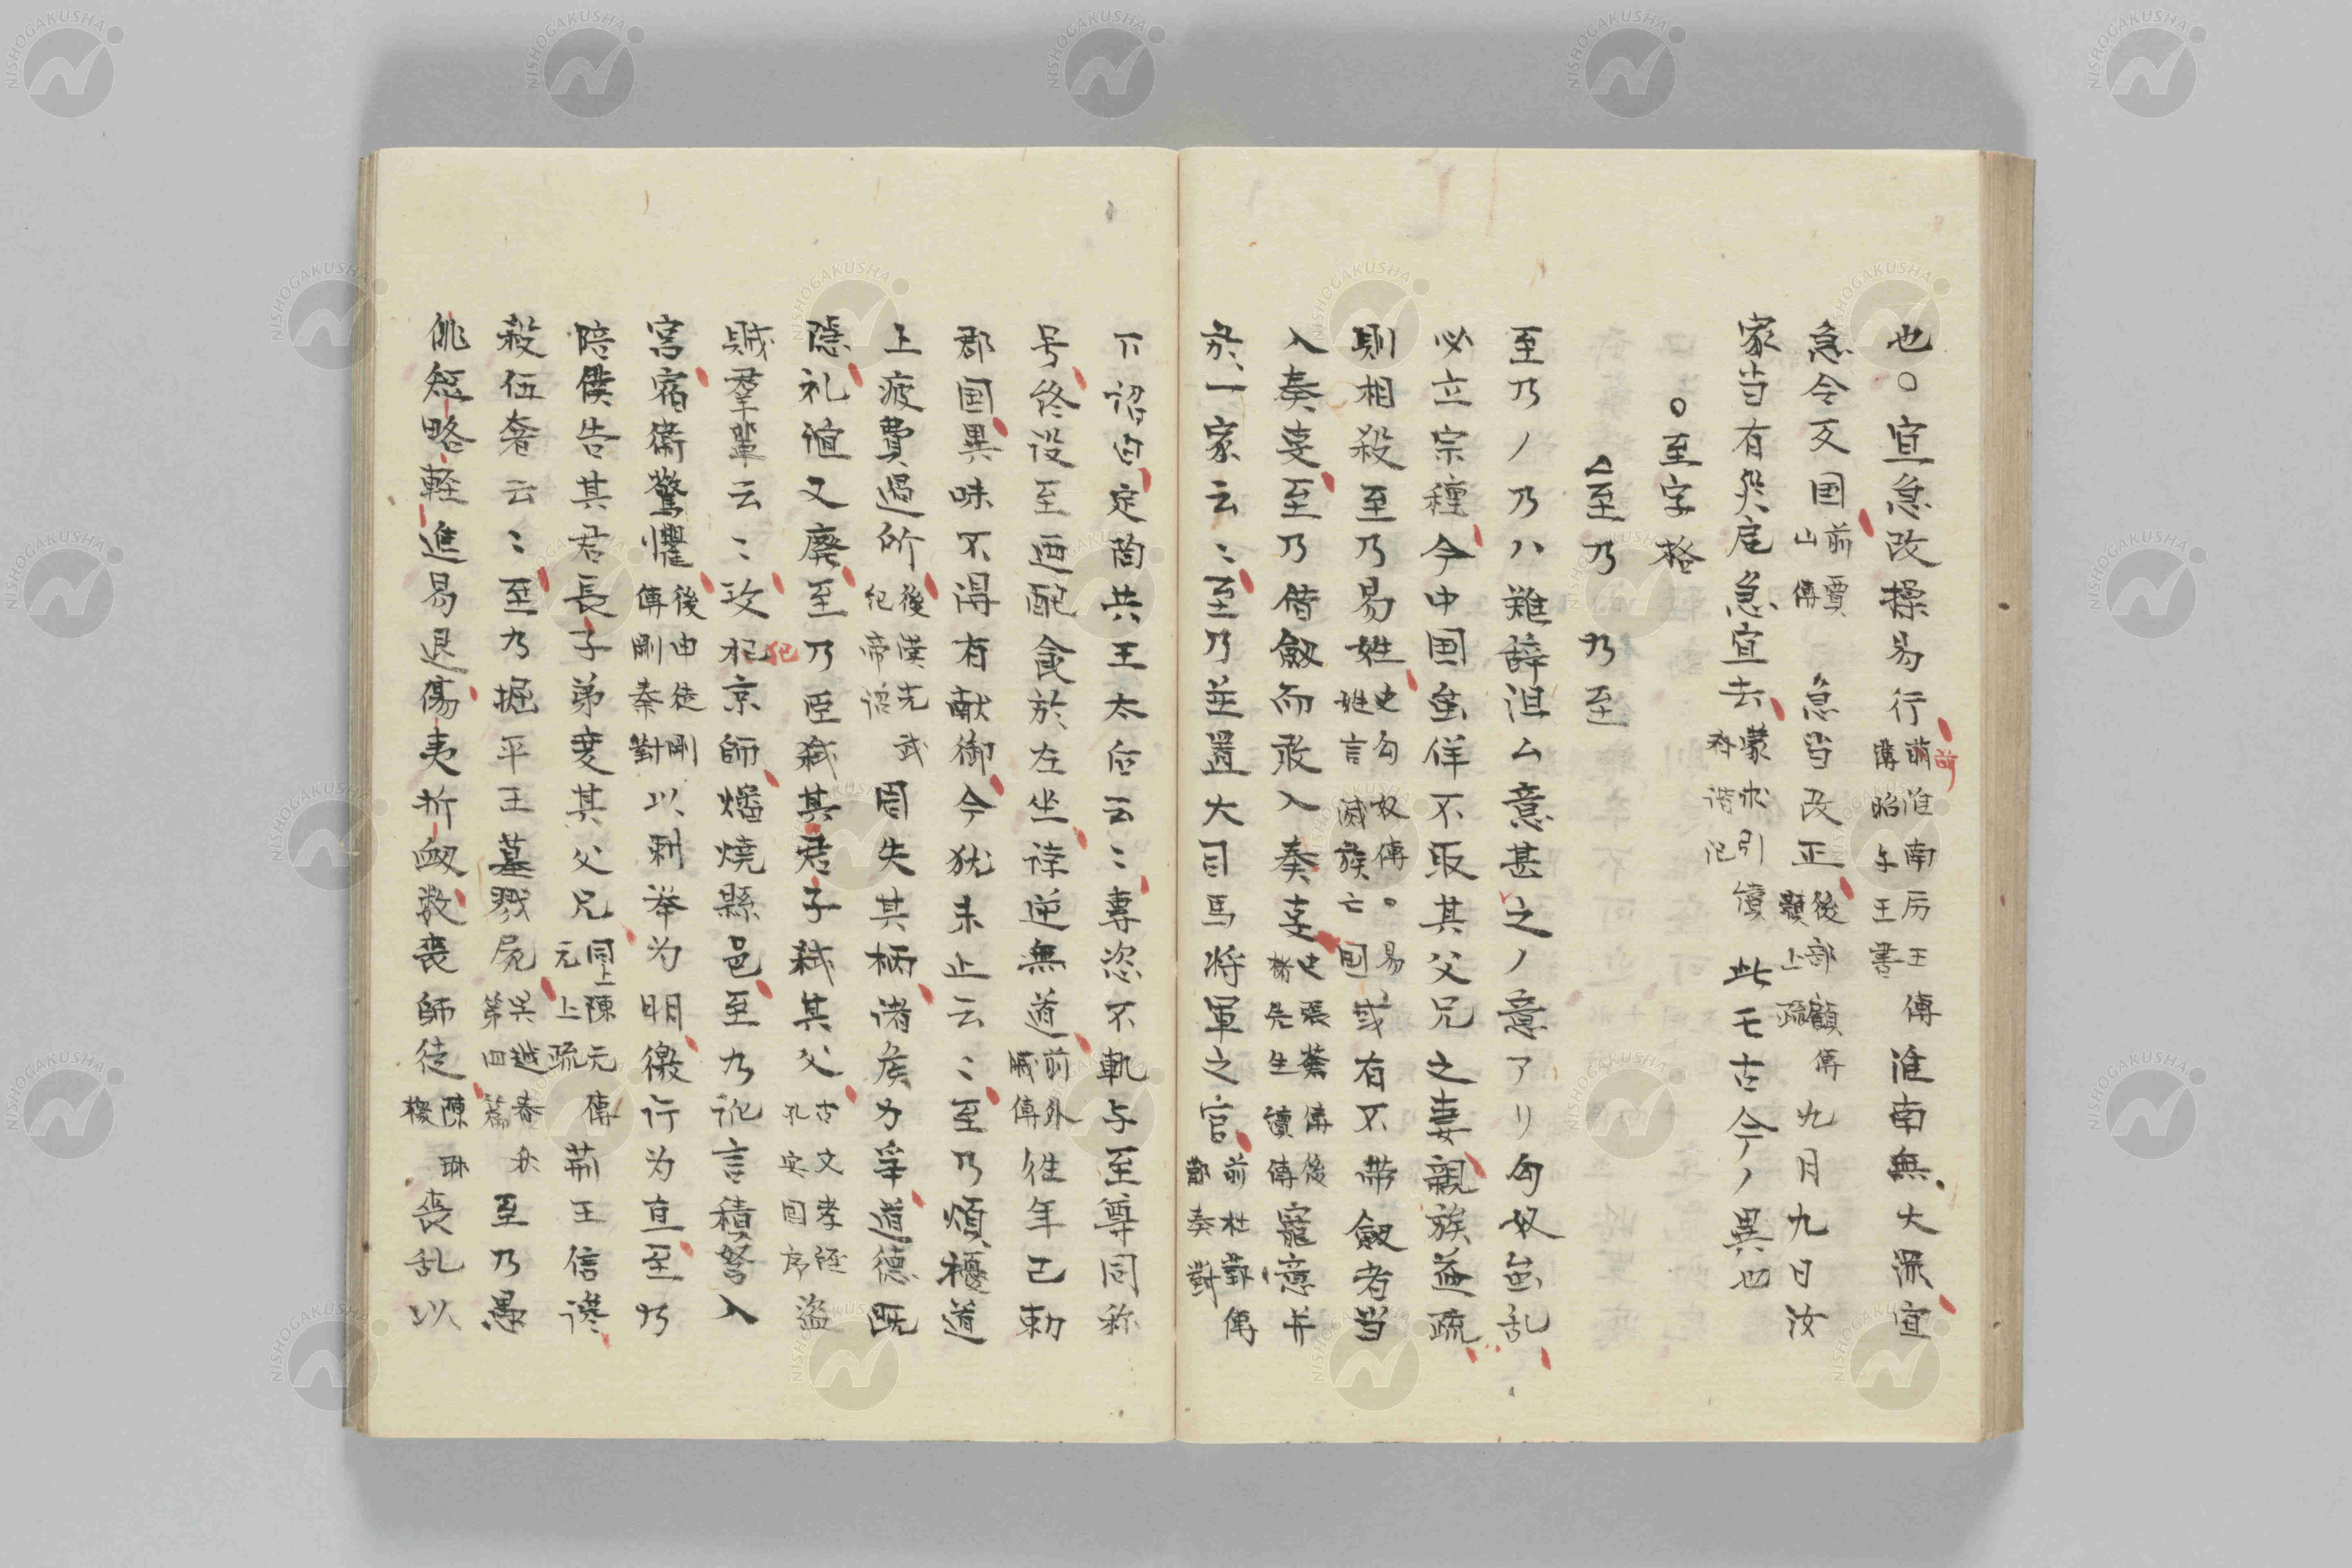 也○宜急改操易行前淮南厉王傳淮南無大深宜
薄昭与王書
急令友国前賈山傳急当改正後部顗傳上疏九月九日汝
家当有災厄急宜去蒙求引續齊谐记此モ古今ノ異也
○至字格
△至乃 乃至
至乃ノ乃ハ難辞泪ム意甚之ノ意アリ匈奴虽乱
必立宗種今中国虽佯不取其父兄之妻親族益疏
則相殺至乃易姓史匈奴傳○易姓言滅族亡国或有不带劔者当
入奏事至乃借劔而敢入奏事史張蒼傳後褚先生讀傳寵意并
於一家云〻至乃並置大司馬将軍之官前杜鄴傳鄴奏對
下詔自定陶共王太后云〻專恣不軌与至尊同称
号終没至迺配食於左坐誖逆無道前外戚傳往年已勅
郡国異味不得有献御今犹未止云〻至乃煩擾道
上疲費過所後漢光武帝紀詔周失其柄诸侯力爭道德既
隠礼谊又廃至乃臣弑其君子弑其父古文孝経孔安国序盗
賊羣輩云〻攻犯京師燔焼縣邑至乃訛言積弩入
宮宿衛驚懼後申徒剛傳剛秦對以刺举为明徼行为直至乃
陪僕告其君長子弟变其父兄同上陳元傳元上疏荊王信讒
殺伍奢云〻至乃掘平王墓戮屍呉越春秋第四篇至乃愚
佻短略軽進易退傷夷折衂数喪師徒陳琳檄喪乱以